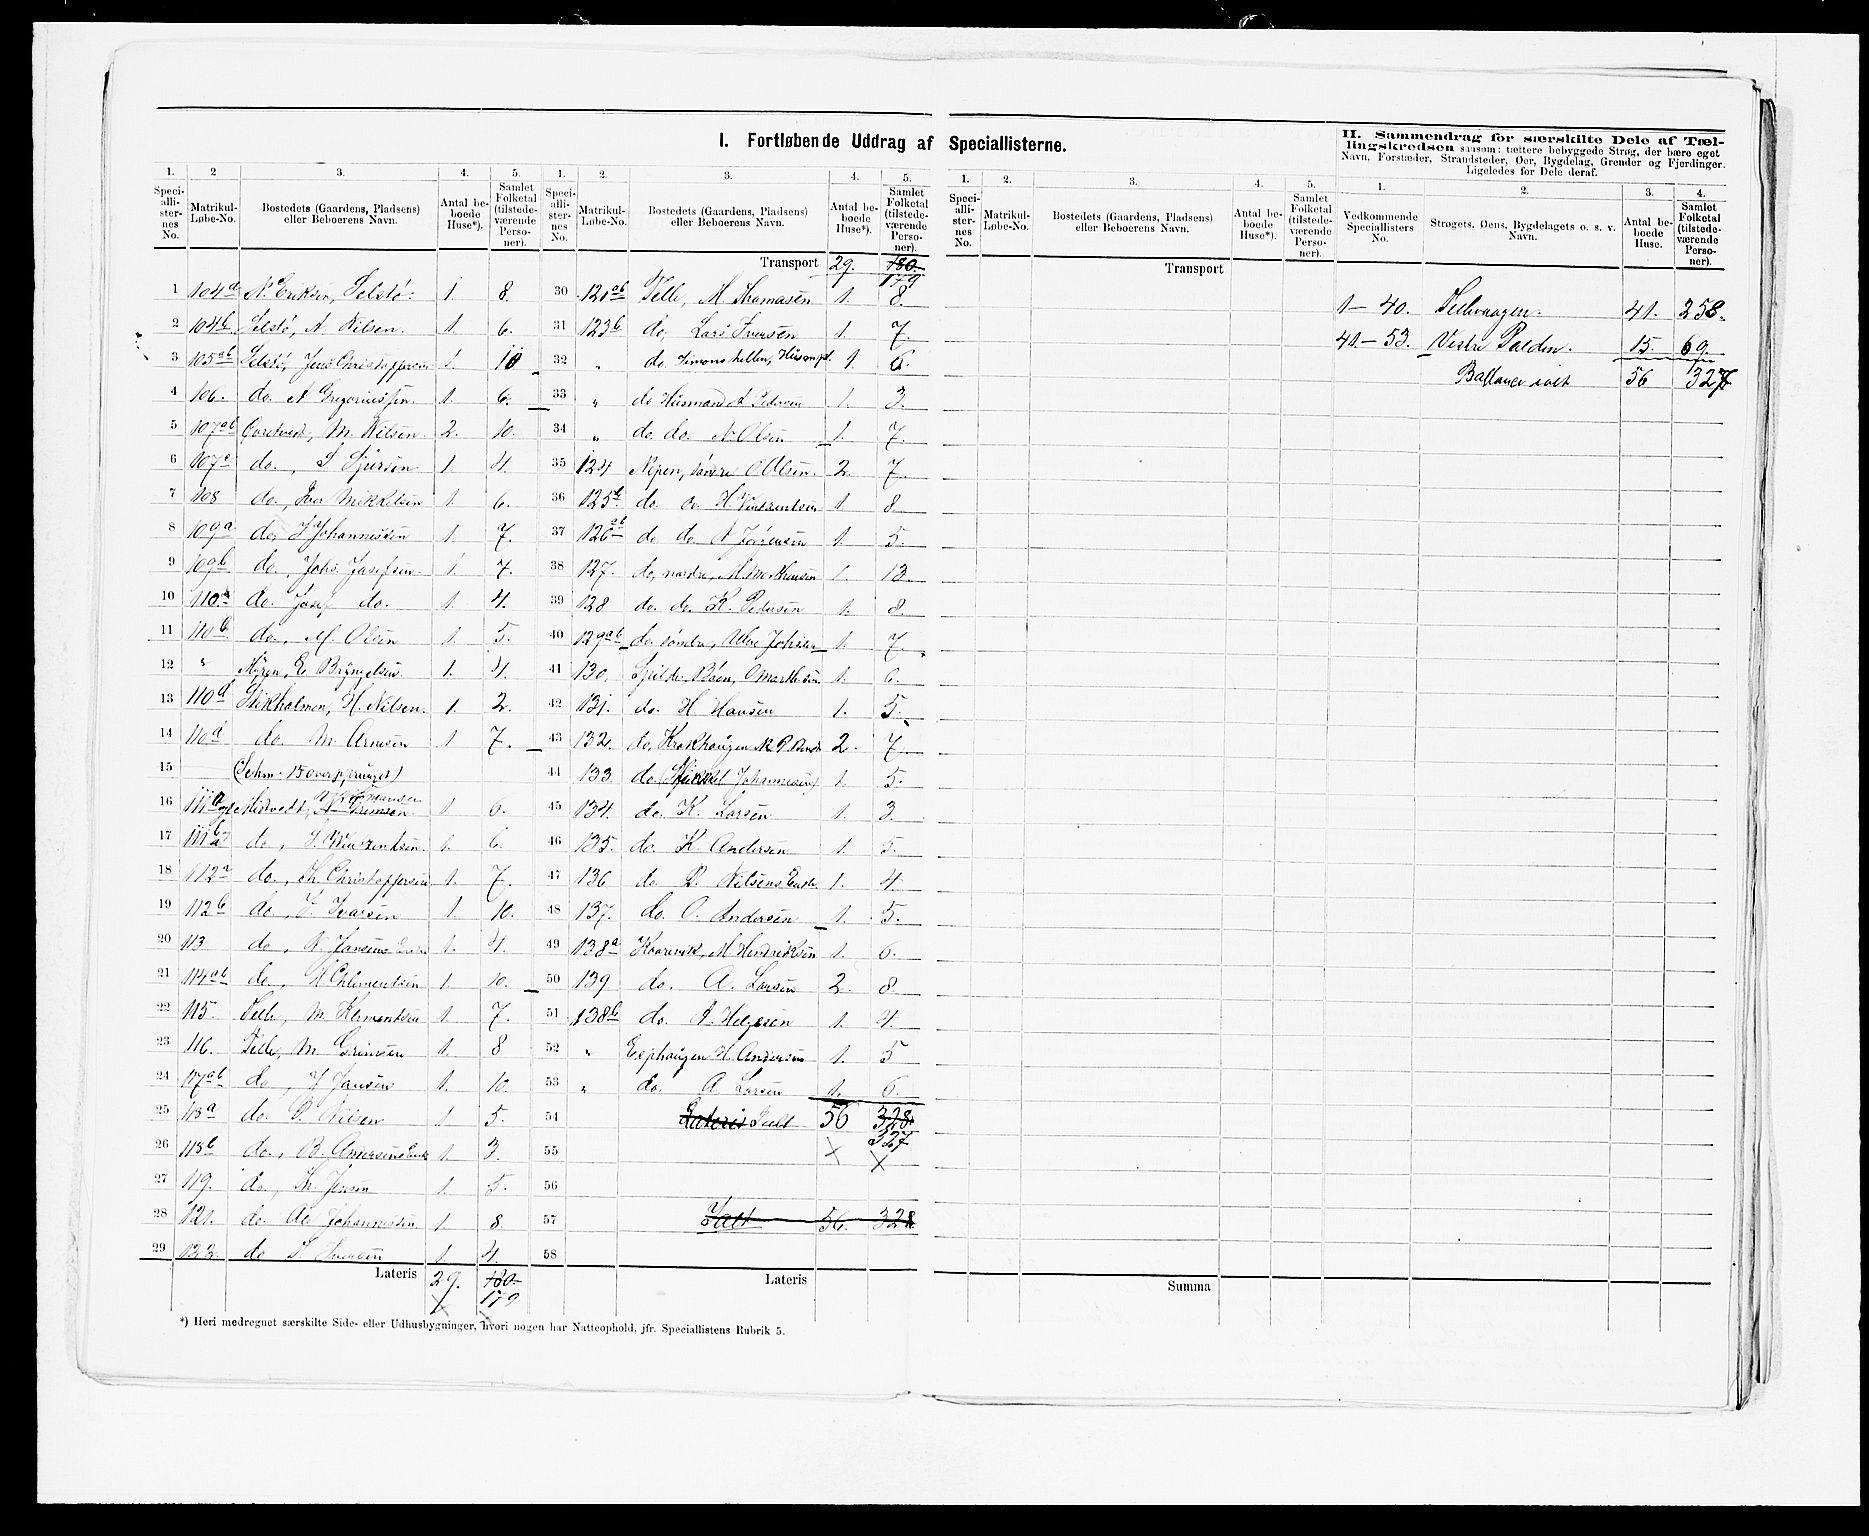 I. Fortløbende Uddrag af Speciallisterne.
II. Sammendrag for særskilte Dele af Tæl-
lingskredsen saasom: tættere bebyggede Strøg, der bære eget
Navn, Forstæder, Strandsteder, Øer, Bygdelag, Grender og Fjerdinger.
Ligeledes for Dele deraf.
1. 2 3. 4. 5. 1. 2. 3. 4. 5. 1. 2. 3. 4. 5. 1. 2. 3. 4.
Speci-alli-ster-nes No. Matrikul-Løbe-No. Bostedets (Gaardens, Pladsens) eller Beboerens Navn. Antal be-boede Huse*). Samlet Folketal (tilstede-værende Perso-ner).
Speci-alli-ster-nes No. Matrikul-Løbe-No. Bostedets (Gaardens, Pladsens) eller Beboerens Navn. Antal be-boede Huse*). Samlet Folketal (tilstede-værende Perso-ner).
Speci-alli-ster-nes No. Matrikul-Løbe-No. Bostedets (Gaardens, Pladsens) eller Beboerens Navn. Antal be-boede Huse*). Samlet Folketal (tilstede-værende Perso-ner).
Vedkommende Speciallisters No. Strøgets, Øens, Bygdelagets o. s. v. Navn. Antal be-boede Huse. Samlet Folketal (tilstede-værende Perso-ner).
1 104a N. Eriksen, Selstø. 1 8.
2 104b Selstø, A. Nilsen. 1. 6.
3 105ab Selstø, Jens Christoffersen 1. 10
4 106. do. A Gregoriussen 1. 6.
5 107ab Qvretvedt, M. Nilsen. 2. 10.
6 107c do., S. Sjursen 1. 4.
7 108 do., Iver Mikkelsen 1. 6.
8 109a do, J Johannessen 1. 7.
9 109b do., Johs. Josefsen. 1. 4.
10 110a do. Josef do. 1. 4.
11 110b do., M. Olsen 1. 5.
12 " Myren, E. Bryngelsen. 1. 4.
13 110d Stikholmen, H. Nilsen. 1. 2.
14 110d do. M. Arnesen 1 7.
15 (Schm. 15 oversprunget)
16 Mistvedt, 1 6.
17 do, 1. 6.
18 112a do., Th. Christoffersen 1. 7.
19 112b do, J. Ivarsen 1. 10.
20 113 do, N. Jansens Enke 1. 4.
21 114ab do., H Chlementsen 1. 10.
22 115. Telle, M. Klementsen 1. 7.
23 116. Telle, M. Grimsen 1. 8
24 117ab do, J Jansen 1. 10.
25 118a do. P. Nilsen 1 5.
26 118b do., B. Andersens Enke 1. 3.
27 119. do, Th. Jensen 1. 5.
28 121. do. Ole Johannessen 1 8.
29 122. do 1 4.
Lateris 29. 180. 179
Transport 29. 180. 179
30 121ab Telle, M Thomasen 1. 8.
31 123b do, Lars Iversen 1. 7.
32 " do. Simonshellen, Husmpl. 1. 6.
33 " do Husmand A Pedersen 1. 3.
34 " do. do. N Olsen 1. 7.
35 124 Nepen, søndre O. Olsen. 2. 7.
36 125b do. do. H 1 8
37 126ab do do. A Jørensen 1. 5.
38 127. do, nordre, M. Morthensen 1. 13.
39 128 do. do. K. Pedersen 1. 8.
40 129ab do. søndre, 1. 7.
41 130. Spilde, O Marthesen 1. 6.
42 131. do. H Hansen 1. 5.
43 132. do, Krakhaugen 2. 7.
44 133 do. (Mikkel Johannesen) 1. 5.
45 134. do. K. Larsen 1. 3.
46 135. do. K Andersen 1. 5.
47 136 do P. Nilsens Enke. 1. 4.
48 137. do. O. Andersen 1. 5.
49 138a Kaarevik, M Hendriksen 1. 6.
50 139 do. A. Larsen 2. 8.
51 138b do. A. Helgesen 1. 4.
52 " Esphaugen H. Andersen 1. 5
53 " do. A Larsen 1. 6.
54 Lateris Ialt 56 328 327
55
56
57 Ialt 56. 328.
58
Lateris
Transport
Summa
1 – 40. Selvaagen. 41. 258.
41 – 53. Vestre Palden. 15 69
ialt 56 327
*) Heri medregnet særskilte Side- eller Udhusbygninger, hvori nogen har Natteophold, jfr. Speciallistens Rubrik 5.